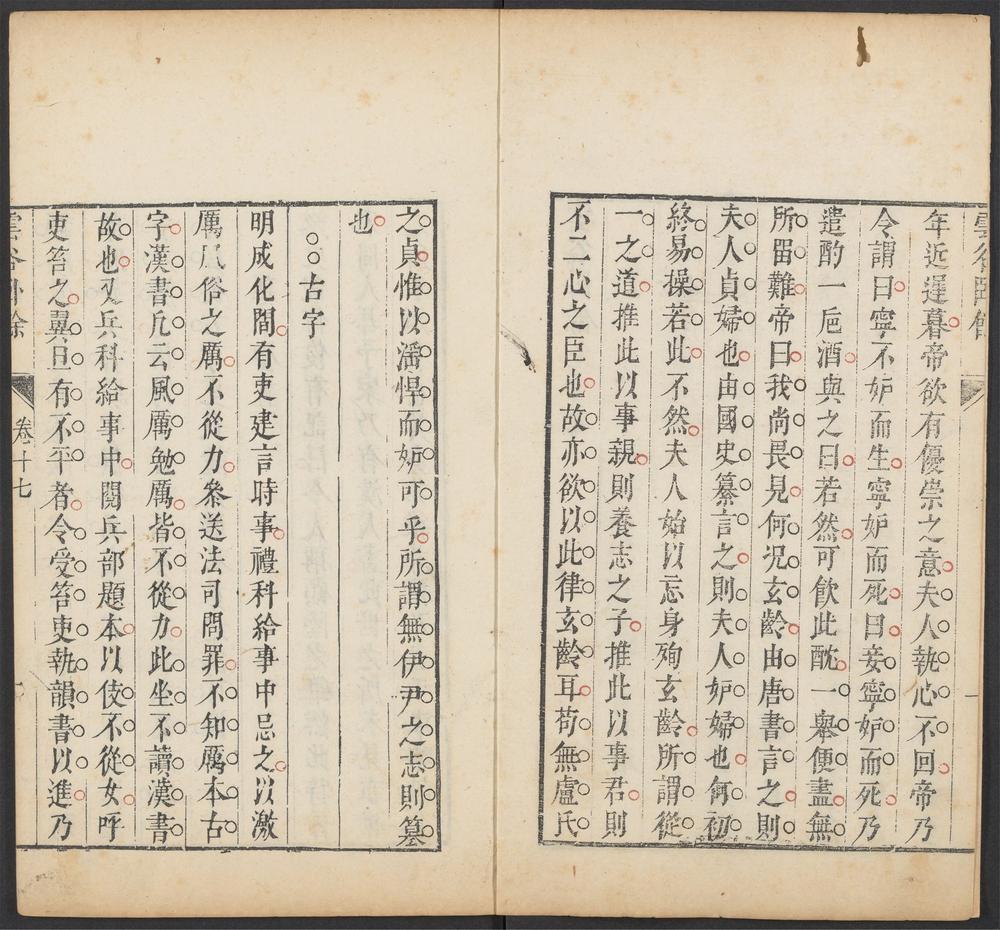 年近遲暮帝欲有優崇之意夫人執心不回帝乃
令謂曰寧不妒而生寧妒而死曰妾寧妒而死乃
遣酌一巵酒與之曰若然可飮此酖一舉便盡無
所畱難帝曰我尚畏見何况玄齡由唐書言之則
夫人貞婦也由國史纂言之則夫人妒婦也何初
終易操若此不然夫人始以忘身殉玄齡所謂從
一之道推此以事親則養志之子推此以事君則
不二心之臣也故亦欲以此律玄齡耳苟無盧氏
之貞惟以潘悍而妬可乎所謂無伊尹之志則篡
也
古字
明成化間有吏建言時事禮科給事中忌之以激
厲風俗之厲不從力叅送法司問罪不知厲本古
字漢書凡云風厲勉厲皆不從力此坐不讀漢書
故也又兵科給事中閱兵部題本以伎不從女呼
吏笞之翼旦有不平者令受笞吏執韻書以進乃
卷十七